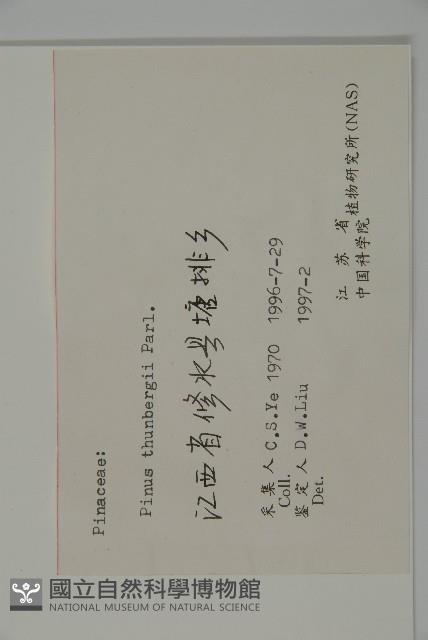 Pinaceae:
Pinus thunbergii Parl.
江西省修水县塘排乡
采集人 C.S.Ye 1970 1996-7-29
Coll.
鉴定人 D.W.Liu 1997-2
Det.
江苏省
中国科学院植物研究所(NAS)
國立自然科學博物館
NATIONAL MUSEUM OF NATURAL SCIENCE